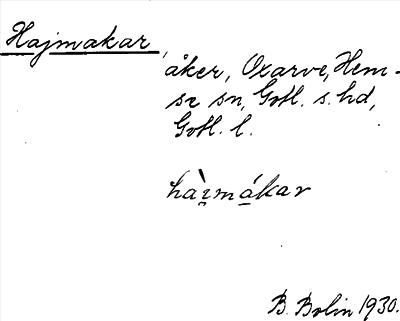 Hajmakar,
åker, Oxarve, Hem-
se sn, Gotl. s. hd,
Gotl. l.
hàɪmákar
B. Bolin 1930.